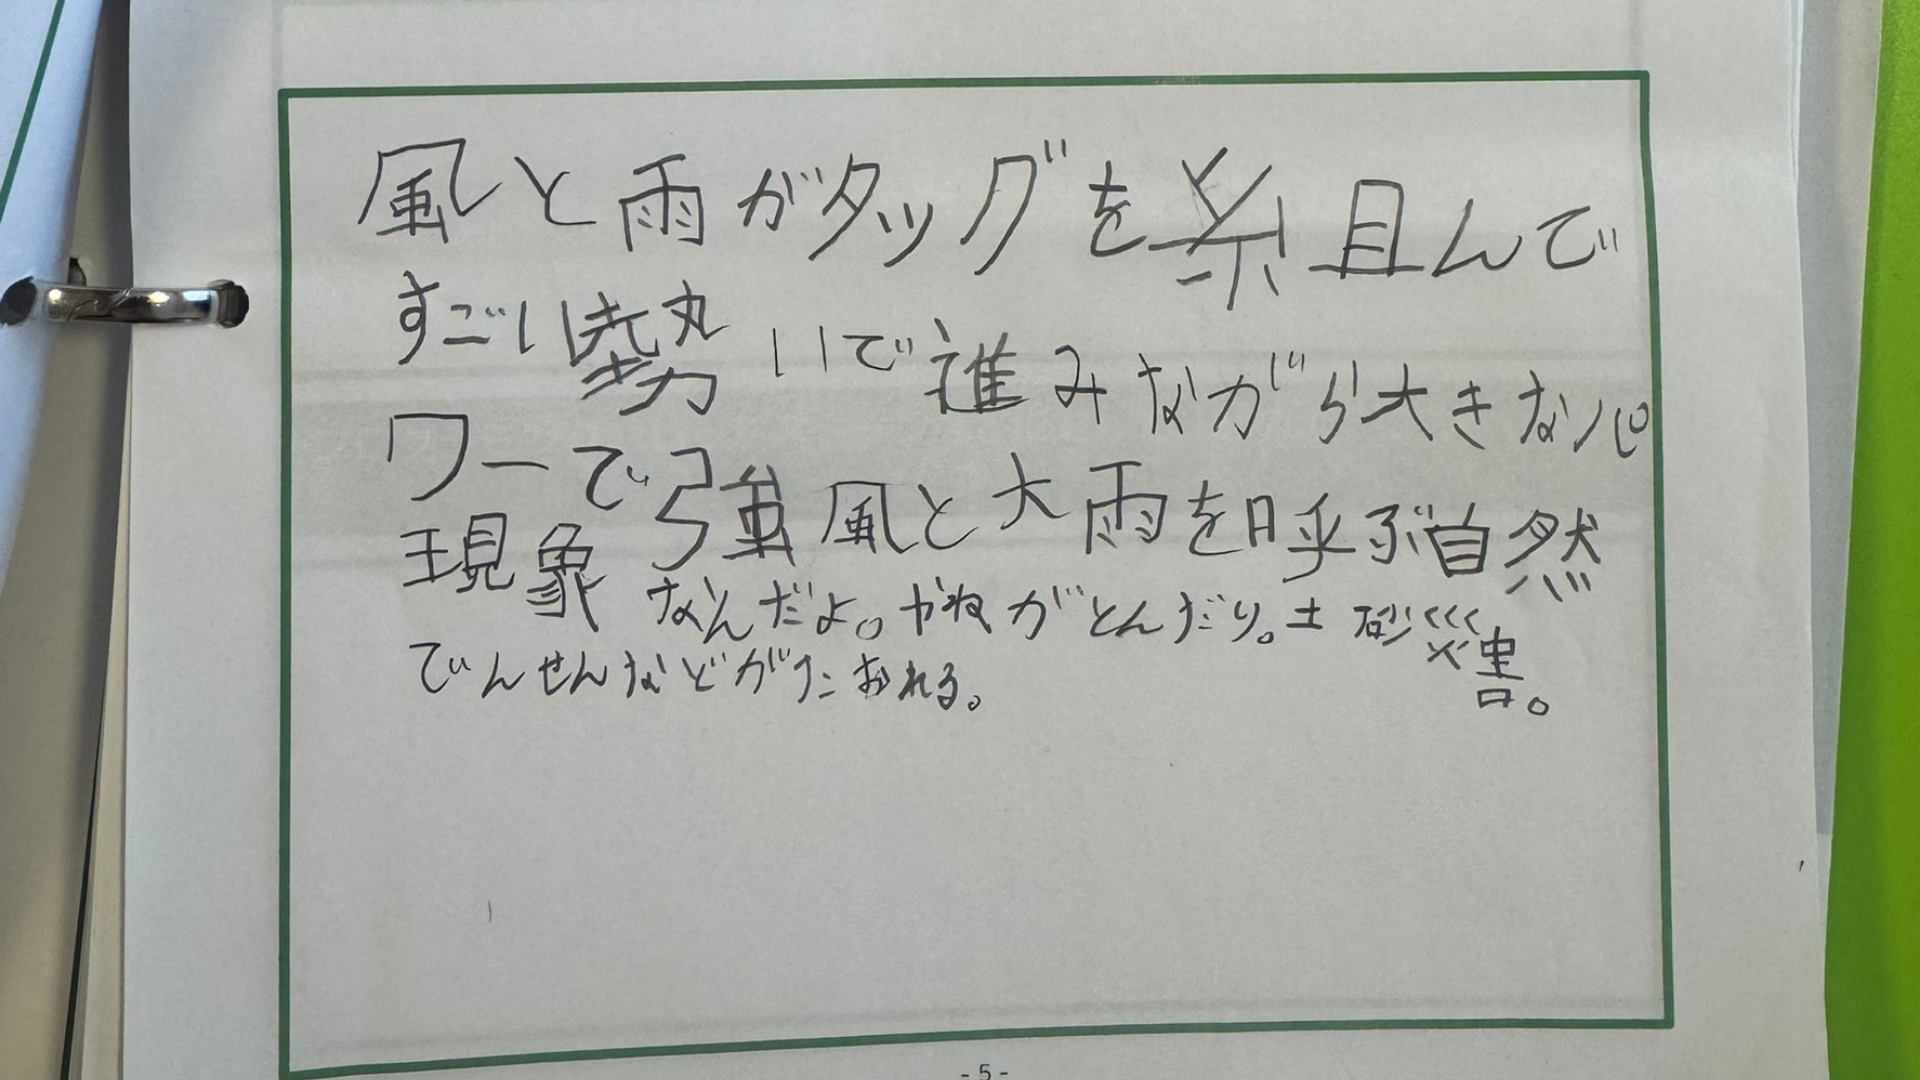 風と雨がタッグを組んで
すごい勢いで進みながら大きなパ
ワーで強風と大雨を呼ぶ自然
現象なんだよ。やねがとんだり。土砂災害。
でんせんなどがたおれる。
- 5 -